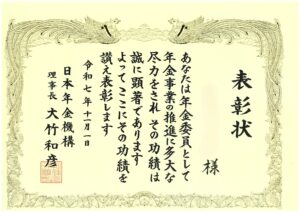 表彰状
様
あなたは年金委員として
年金事業の推進に多大な
尽力をされ その功績は
誠に顕著であります
よってここにその功績を
讃え表彰します
令和七年十一月一日
日本年金機構
理事長 大竹和彦